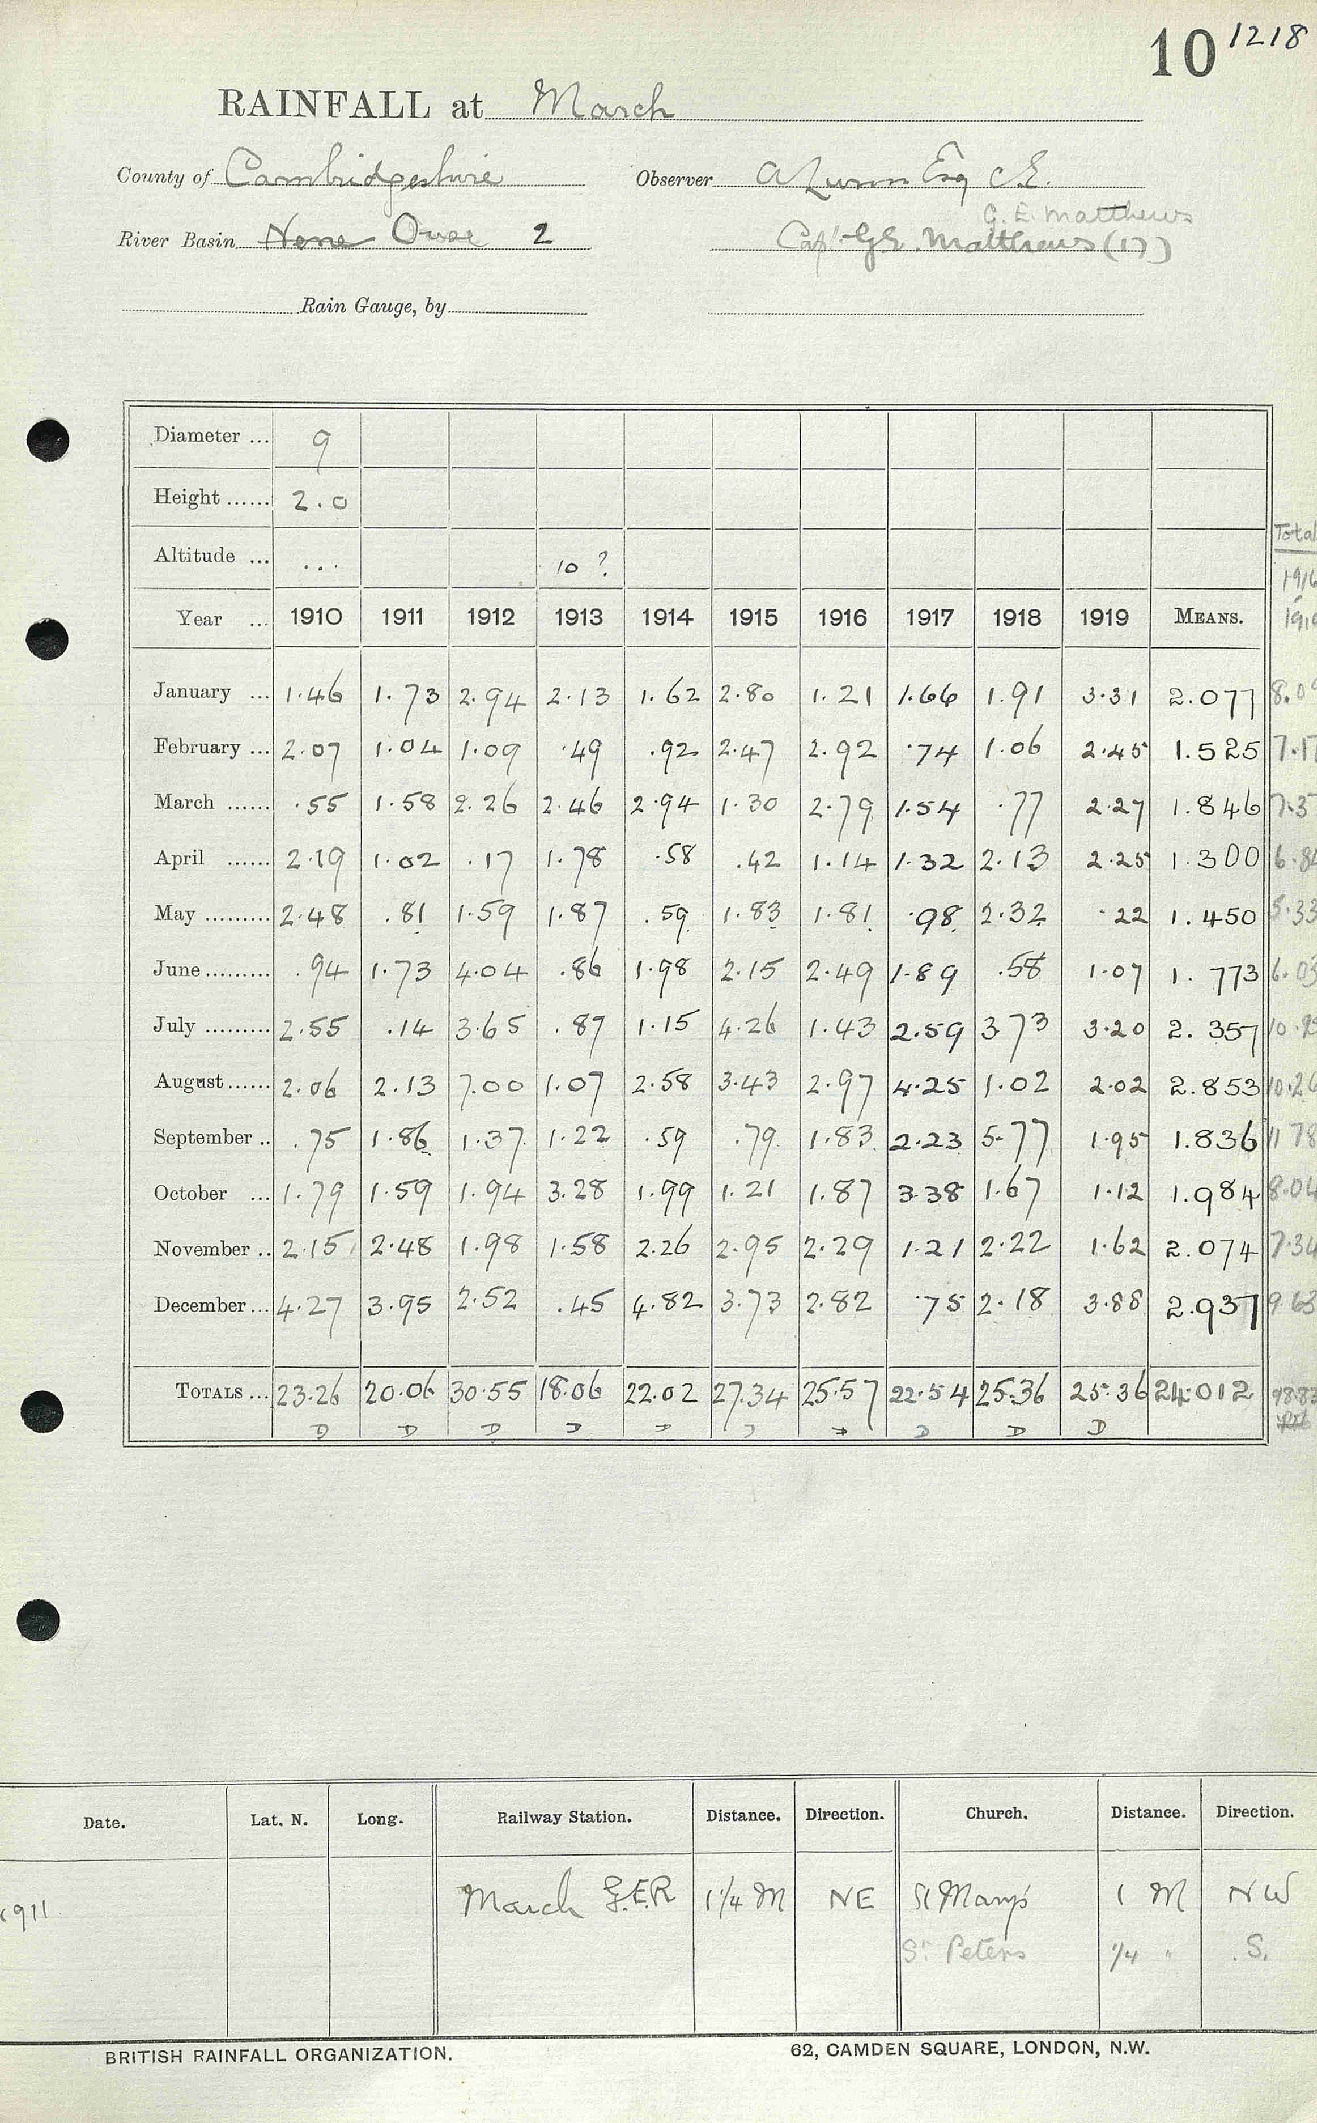 10 1218
RAINFALL at March
County of Cambridgeshire Observer A Esq C.E.
C. E. Matthews
River Basin Nene Ouse 2 Capt. G.E. Matthews (17)
Rain Gauge, by
Diameter ... 9
Height ...... 2.0
Total
Altitude ... ... 10 ?
1916
Year ... 1910 1911 1912 1913 1914 1915 1916 1917 1918 1919 MEANS.
January ... 1.46 1.73 2.94 2.13 1.62 2.80 1.21 1.66 1.91 3.31 2.077
February ... 2.07 1.04 1.09 .49 .92 2.47 2.92 .74 1.06 2.45 1.525
March ...... .55 1.58 2.26 2.46 2.94 1.30 2.79 1.54 .77 2.27 1.846
April ...... 2.19 1.02 .17 1.78 .58 .42 1.14 1.32 2.13 2.25 1.300
May ......... 2.48 .81 1.59 1.87 .59 1.83 1.81 .98 2.32 .22 1.450 5.33
June ......... .94 1.73 4.04 .86 1.98 2.15 2.49 1.89 .58 1.07 1.773 6.03
July ......... 2.55 .14 3.65 .87 1.15 4.26 1.43 2.59 3.73 3.20 2.357 10.95
August ...... 2.06 2.13 7.00 1.07 2.58 3.43 2.97 4.25 1.02 2.02 2.853 10.26
September .. .75 1.86 1.37 1.22 .59 .79 1.83 2.23 5.77 1.95 1.836 11 78
October ... 1.79 1.59 1.94 3.28 1.99 1.21 1.87 3.38 1.67 1.12 1.984 8.04
November .. 2.15 2.48 1.98 1.58 2.26 2.95 2.29 1.21 2.22 1.62 2.074 7.34
December ... 4.27 3.95 2.52 .45 4.82 3.73 2.82 .75 2.18 3.88 2.937 9.63
TOTALS ... 23.26 20.06 30.55 18.06 22.02 27.34 25.57 22.54 25.36 25.36 24.012 98.83
D D D D D D D D D D
Date. Lat. N. Long. Railway Station. Distance. Direction. Church. Distance. Direction.
1911 March G.E.R 1 1/4 M NE St Marys 1 M NW
St Peters 1/4 " S.
BRITISH RAINFALL ORGANIZATION. 62, CAMDEN SQUARE, LONDON, N.W.